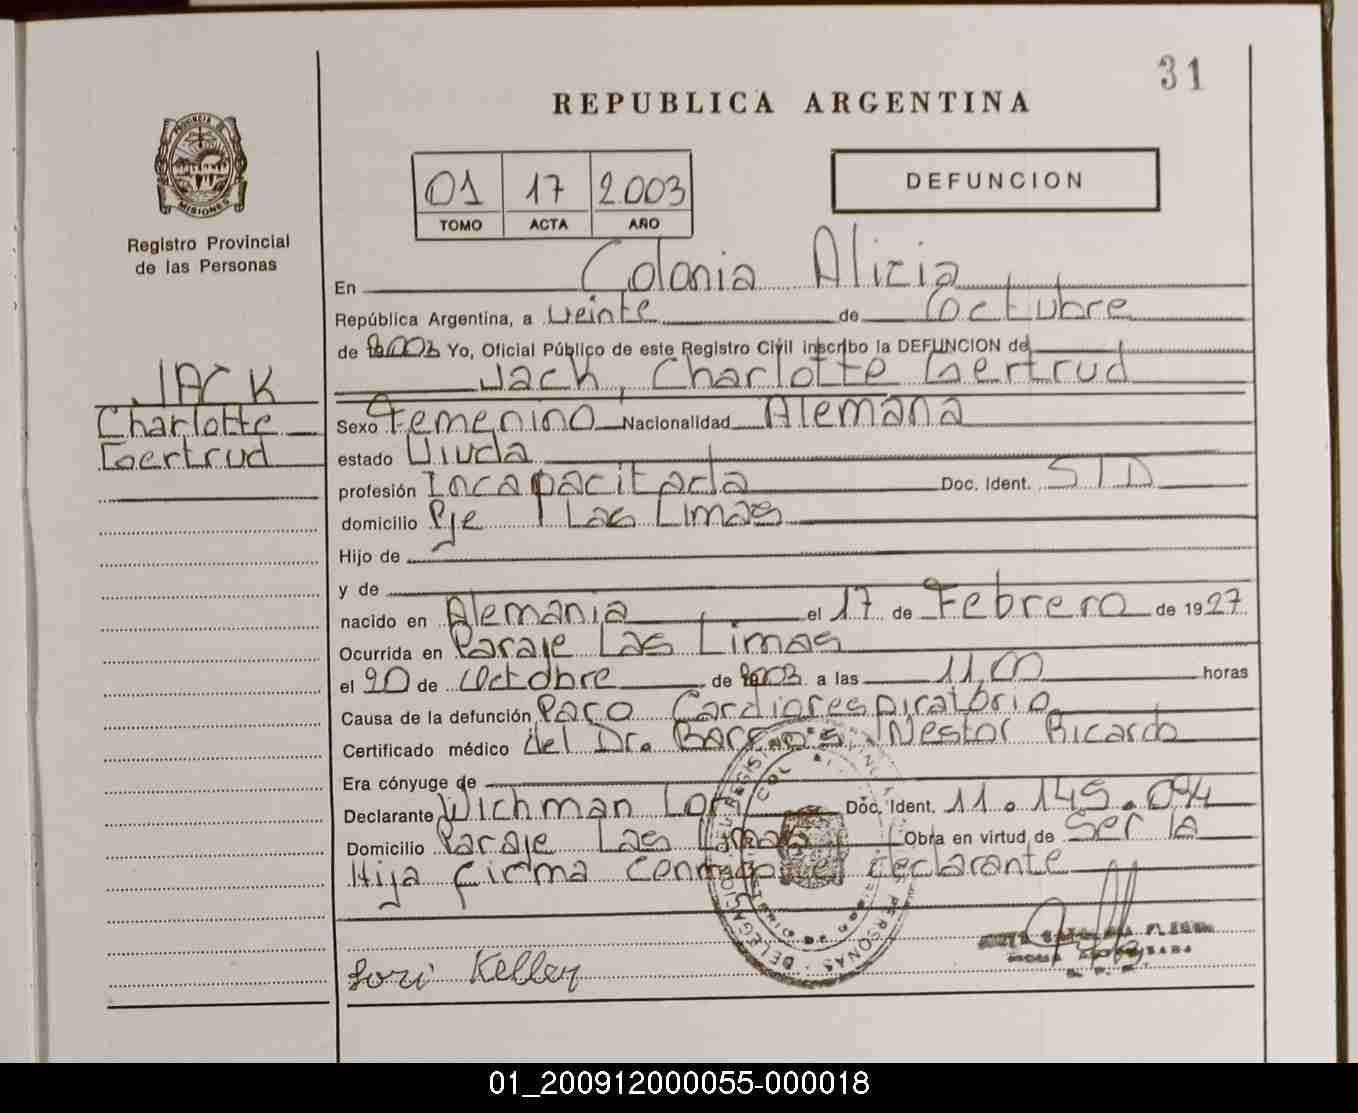 31
REPUBLICA ARGENTINA
PROVINCIA DE
MISIONES
Registro Provincial
de las Personas
01 17 2.003
TOMO ACTA AÑO
DEFUNCION
En Colonia Alicia
República Argentina, a veinte de octubre
de 2003 Yo, Oficial Público de este Registro Civil inscribo la DEFUNCION de
Jack, Charlotte Gertrud
JACK
Charlotte
Gertrud
Sexo Femenino Nacionalidad Alemana
estado Viuda
profesión Incapacitada Doc. Ident. S/D
domicilio Pje Las Limas
Hijo de
y de
nacido en Alemania el 17 de Febrero de 1927
Ocurrida en Paraje Las Limas
el 20 de Octobre de 2003 a las 11,00 horas
Causa de la defunción Paro Cardiorespiratorio
Certificado médico del Dr. Barrios, Nestor Ricardo
Era cónyuge de
Declarante Wichman Lori Doc. Ident. 11.145.094
Domicilio Paraje Las Limas Obra en virtud de Ser la
Hija firma conmigo el declarante
Lori Keller
01_200912000055-000018